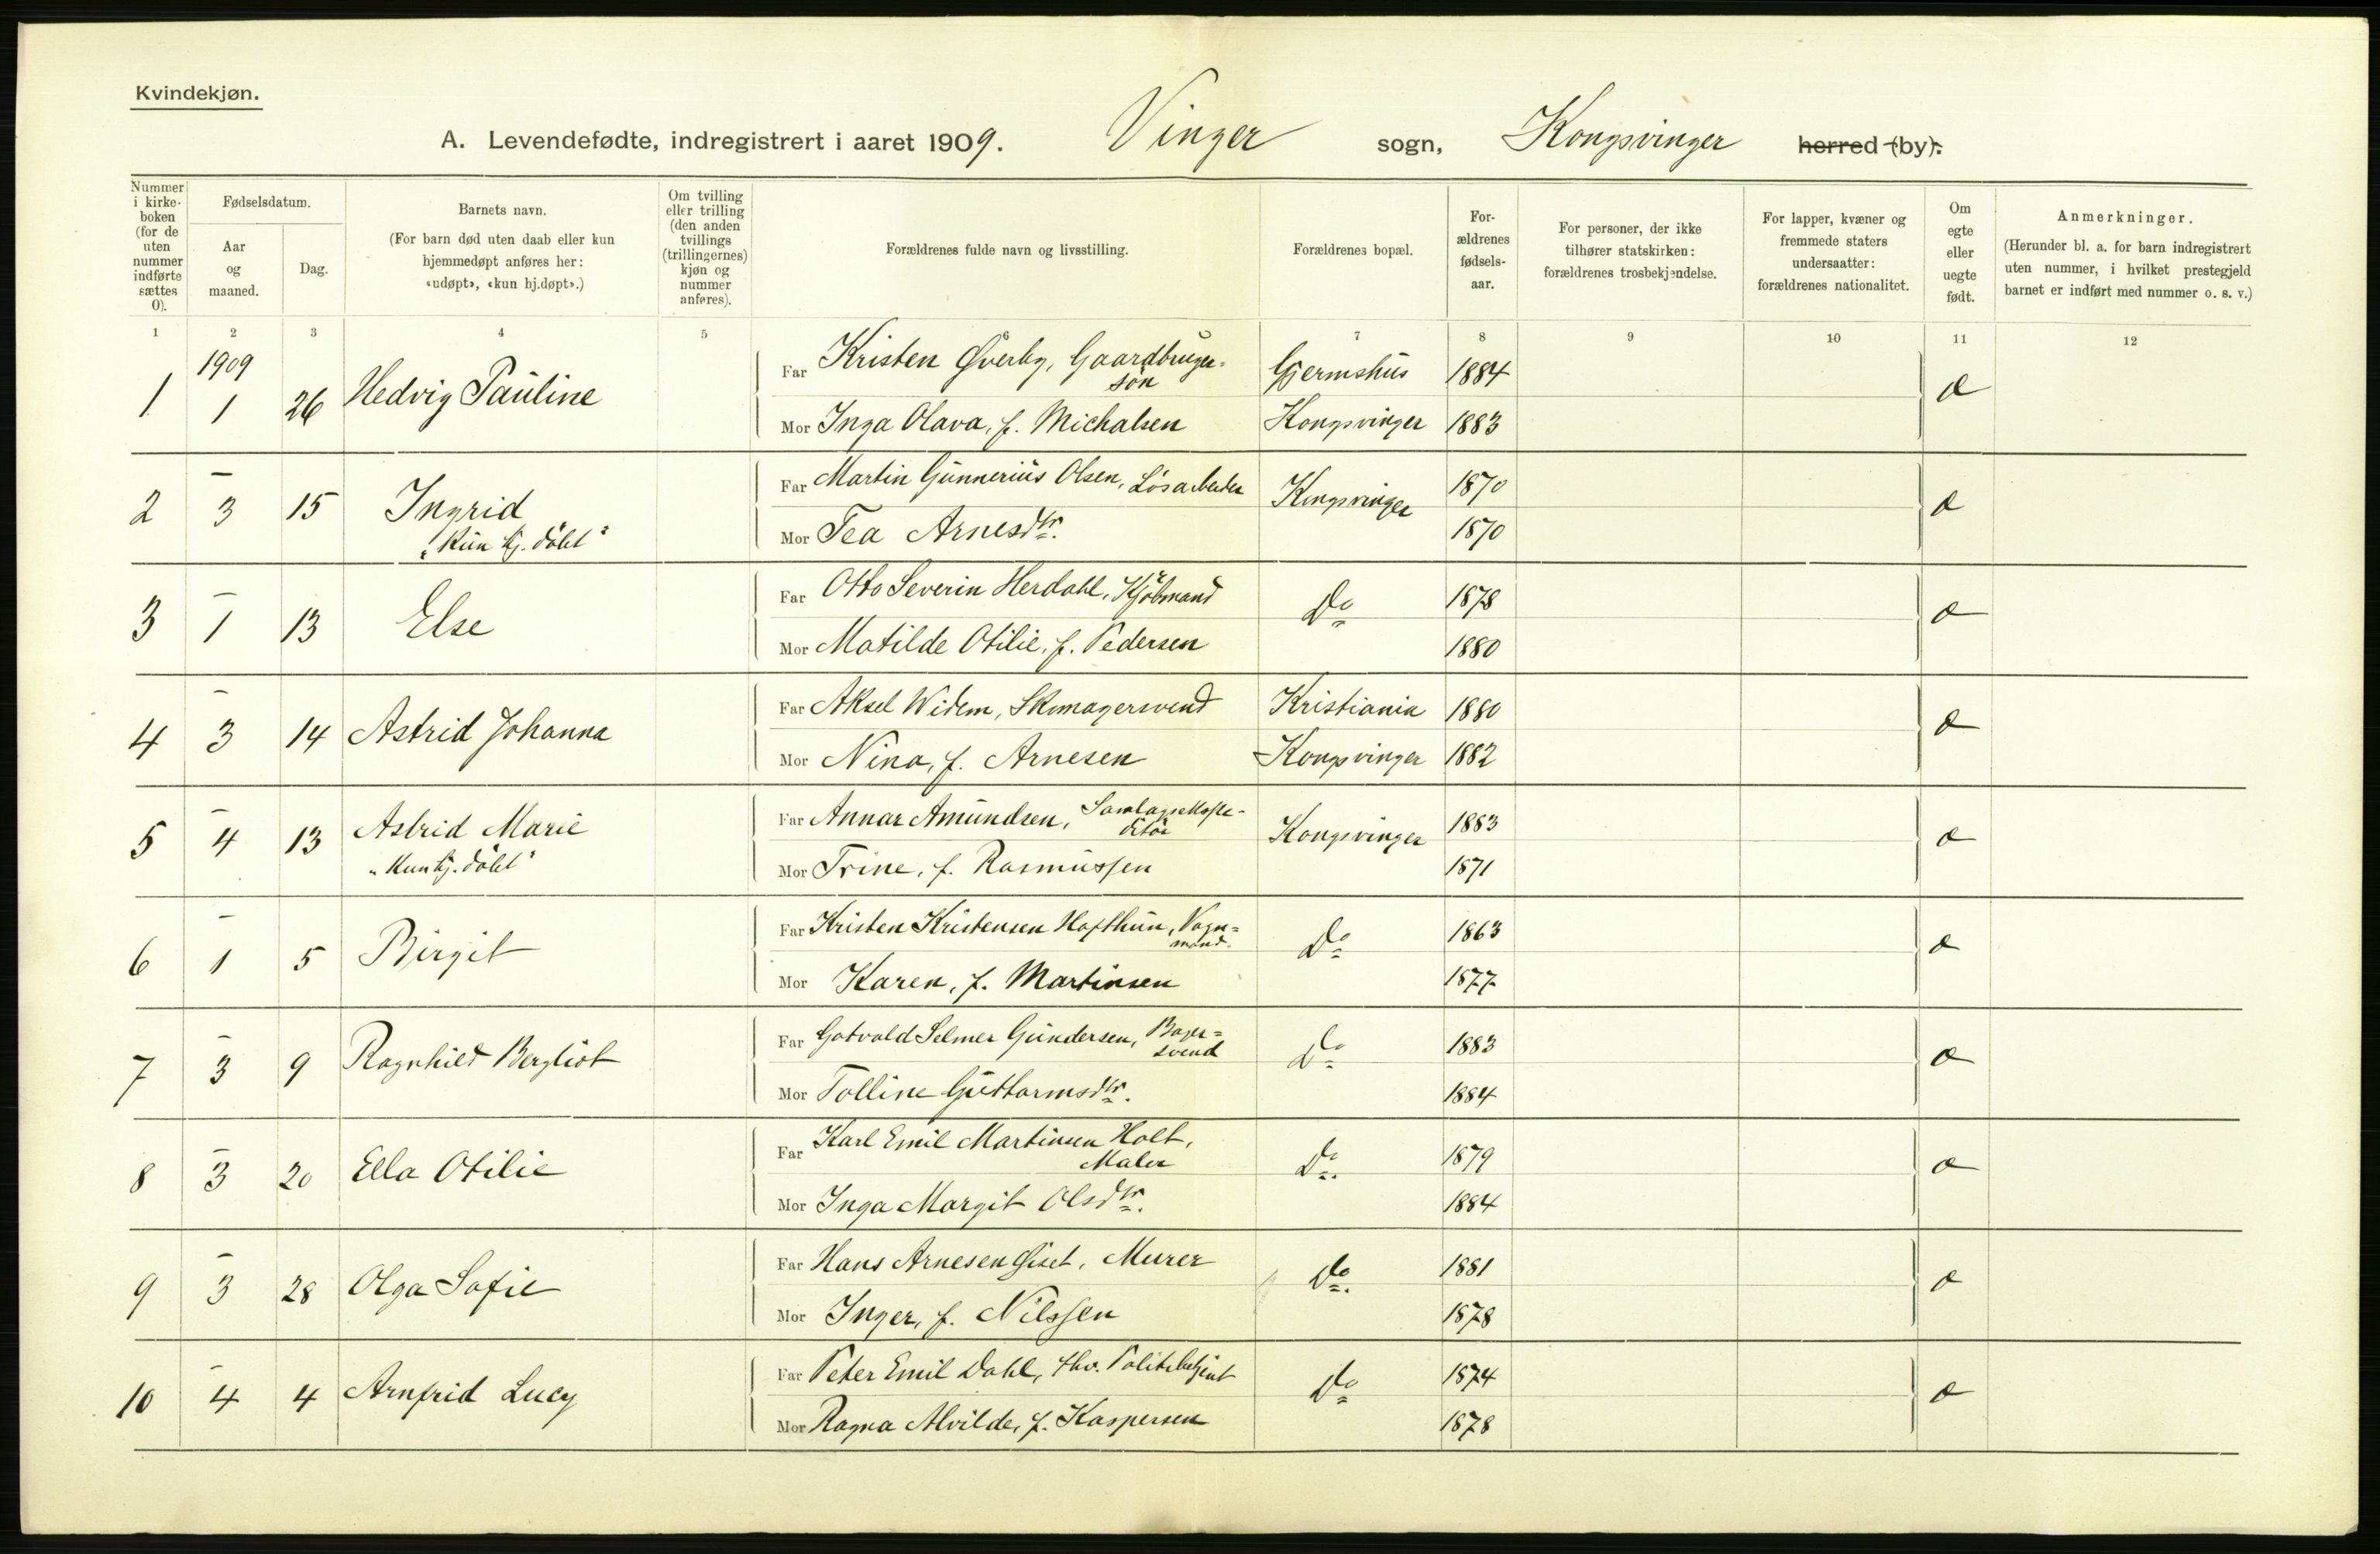 Kvindekjøn.
A. Levendefødte, indregistrert i aaret 1909. Vinger sogn, Kongsvinger herred (by).
Nummer i kirke-boken (for de uten nummer indførte sættes 0).
Fødselsdatum.
Aar og maaned.
Dag.
Barnets navn.
(For barn død uten daab eller kun hjemmedøpt anføres her: «udøpt», «kun hj.døpt».)
Om tvilling eller trilling (den anden tvillings (trillingernes) kjøn og nummer anføres).
Forældrenes fulde navn og livsstilling.
Forældrenes bopæl.
For-ældrenes fødsels-aar.
For personer, der ikke tilhører statskirken: forældrenes trosbekjendelse.
For lapper, kvæner og fremmede staters undersaatter: forældrenes nationalitet.
Om egte eller uegte født.
Anmerkninger.
(Herunder bl. a. for barn indregistrert uten nummer, i hvilket prestegjeld barnet er indført med nummer o. s. v.)
1 2 3 4 5 6 7 8 9 10 11 12
1909
1 1 26 Hedvig Pauline
Far Kristen Øverby, Gaardbruger-
søn Gjermshus 1884
Mor Inga Olava, f. Michalsen Kongsvinger 1883
—
2 3 15 Ingrid
"Kun hj. döbt"
Far Martin Gunnerius Olsen, Løsarbeider Kongsvinger 1870
Mor Tea Arnesdtr. 1870
—
3 1 13 Else
Far Otto Severin Herdahl, Kjöbmand Do 1878
Mor Matilde Otilie, f. Pedersen 1880
—
4 3 14 Astrid Johanna
Far Aksel Widem, Skomagersvend Kristiania 1880
Mor Nina, f. Arnesen Kongsvinger 1882
—
5 4 13 Astrid Marie
"Kun hj. döbt"
Far Annar Amundsen, Kongsvinger 1883
Mor Trine, f. Rasmussen 1871
—
6 1 5 Birgit
Far Kristen Kristensen Hofthun, Vogn-
mand. Do 1863
Mor Karen, f. Martinsen 1877
—
7 3 9 Ragnhild Bergliot
Far Gotvald Selmer Gundersen, Bager-
svend Do 1883
Mor Tolline Guttormsdtr. 1884
—
8 3 20 Ella Otilie
Far Karl Emil Martinsen Holt,
Maler Do. 1879
Mor Inga Margit Olsdtr. 1884
—
9 3 28 Olga Sofie
Far Hans Arnesen Murer Do. 1881
Mor Inger, f. Nilssen 1878
—
10 4 4 Arnfrid Lucy
Far Peter Emil Dahl, Politibetjent Do 1874
Mor Ragna Alvilde, f. Kaspersen 1878